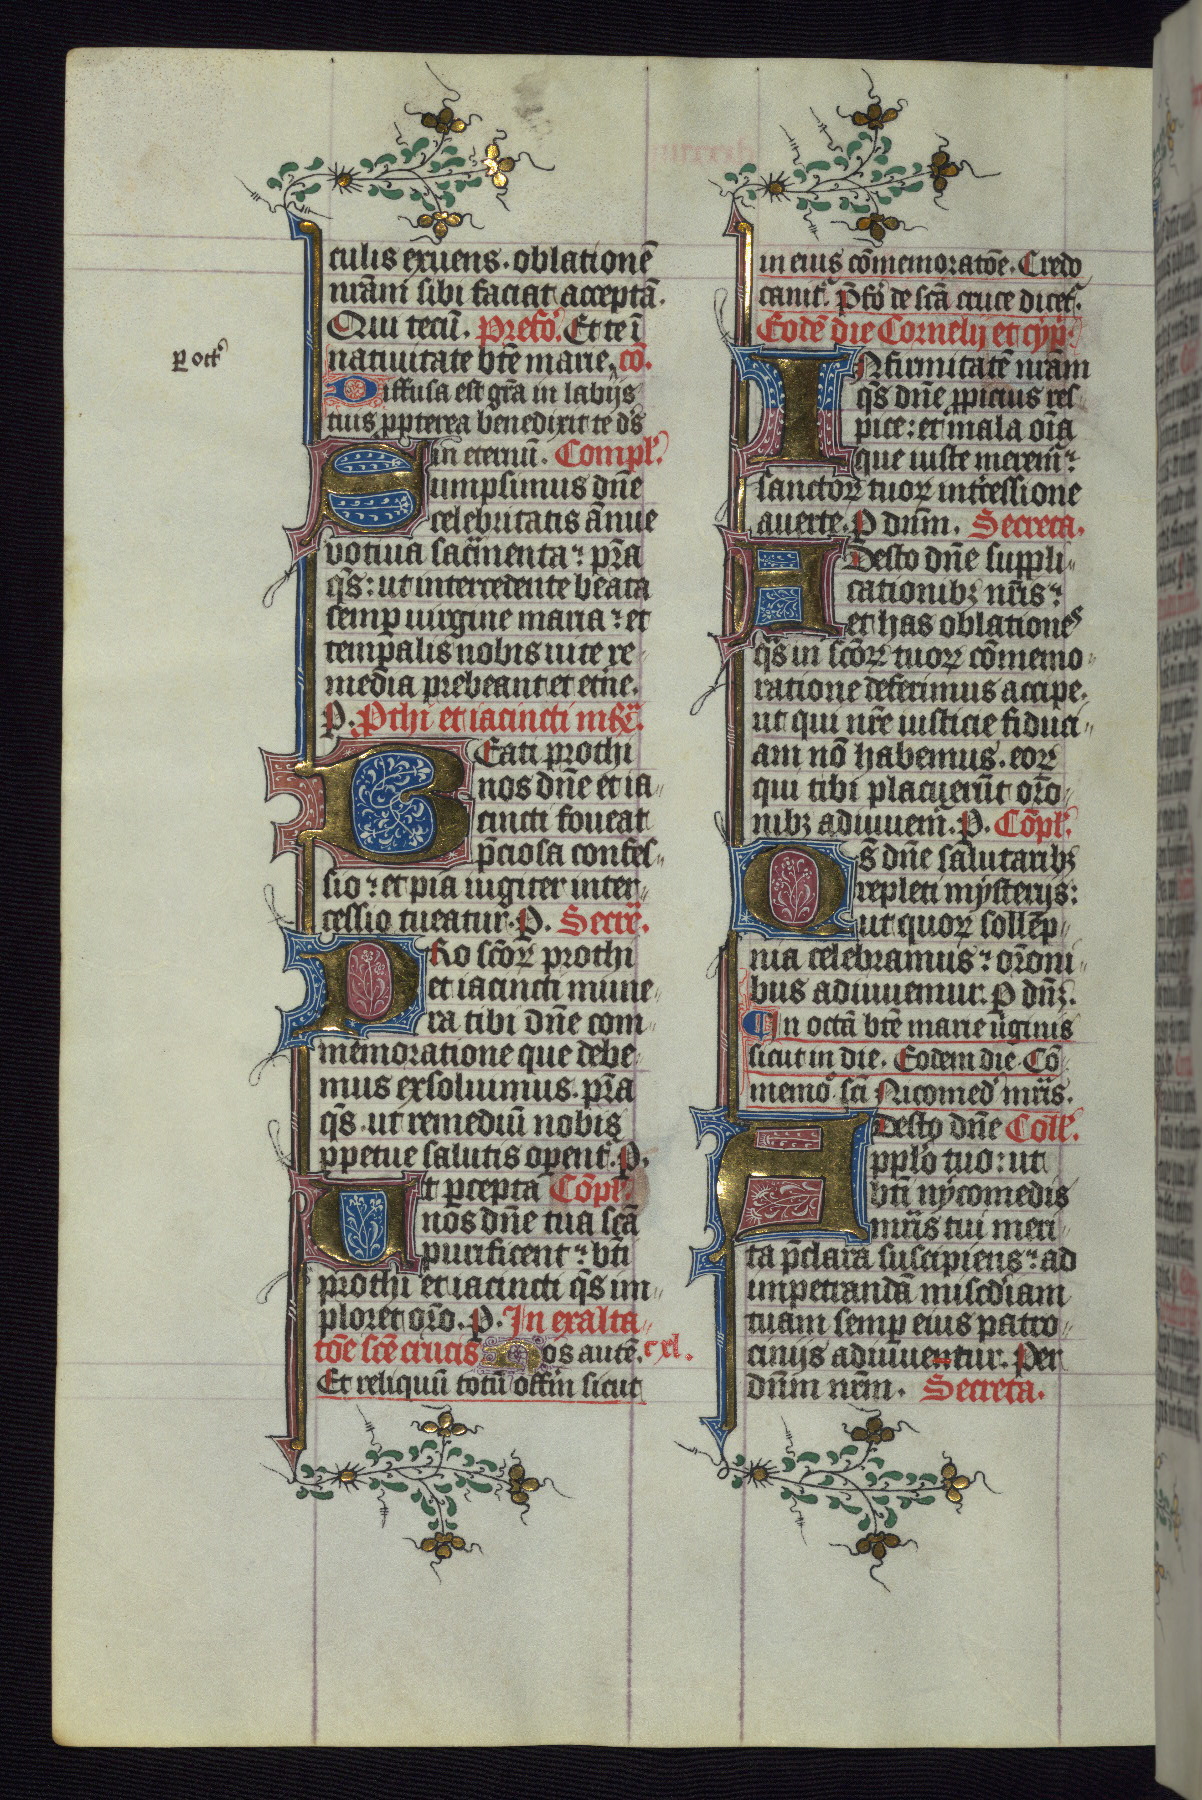 culis exuens. oblationē
nrām sibi faciat acceptā.
Qui tecū. Prefō. Et te ī
natiuitate btē marie, cō.
p octˢ
Diffusa est grā in labijs
tuis ppterea benedixit te dˢ
in eternū. Compl'.
Sumpsimus dn̄e
celebritatis ānue
votiua sac̄menta: prā
qs̄: ut intercedente beata
semp uirgine maria: et
temporalis nobis uite re
media prebeant et etn̄e.
P. Pthi et iacincti mr̄.
Beati prothi
nos dn̄e et ia
cincti foueat
p̄ciosa confes
sio: et pia iugiter inter
cessio tueatur. P. Secre.
Pro scōꝝ prothi
et iacincti mune
ra tibi dn̄e com
memoratione que debe
mus exsoluimus. prā
qs̄. ut remediū nobis
ppetue salutis operēt. P.
Ut p̄cepta Cōpl'.
nos dn̄e tua scā
purificent: bt̄i
prothi et iacincti qs̄ im
ploret orō. P. In exalta
tōe scē crucis Nos autē. cxl.
Et reliquū totū offm̄ sicut
in eius cōmemoratōe. Credo
canit'. P̄fō de scā cruce dicet'.
Eodē die Cornelij et cyp̄.
INfirmitatē nrām
qs̄ dn̄e ppicius res
pice: et mala oīa
que iuste meremˀ:
sanctoꝝ tuoꝝ int̄cessione
auerte. P dnm̄. Secreta.
ADesto dn̄e suppli
cationibꝫ nrīs:
et has oblationeˢ
qs̄ in scōꝝ tuoꝝ cōmemo
ratione deferimus accipe.
ut qui nrē iusticie fiduci
am nō habemus. eoꝝ
qui tibi placuerūt orō
nibꝫ adiuuem̄. P. Cōpl'.
QS̄ dn̄e salutaribꝫ
repleti mysterijs:
ut quoꝝ sollēp
nia celebramus: orōni
bus adiuuemur. P dn̄ꝫ.
In octā btē marie ūginis
sicut in die. Eodem die Cō
memo. scī Nicomed' mrīs.
ADesto dn̄e Coll'.
pplō tuo: ut
bt̄i nycomedis
mrīs tui meri
ta p̄clara suscipiens: ad
impetrandā misc̄diam
tuam semp eius patro
cinijs adiuuentur. Per
dnm̄ nrm̄. Secreta.